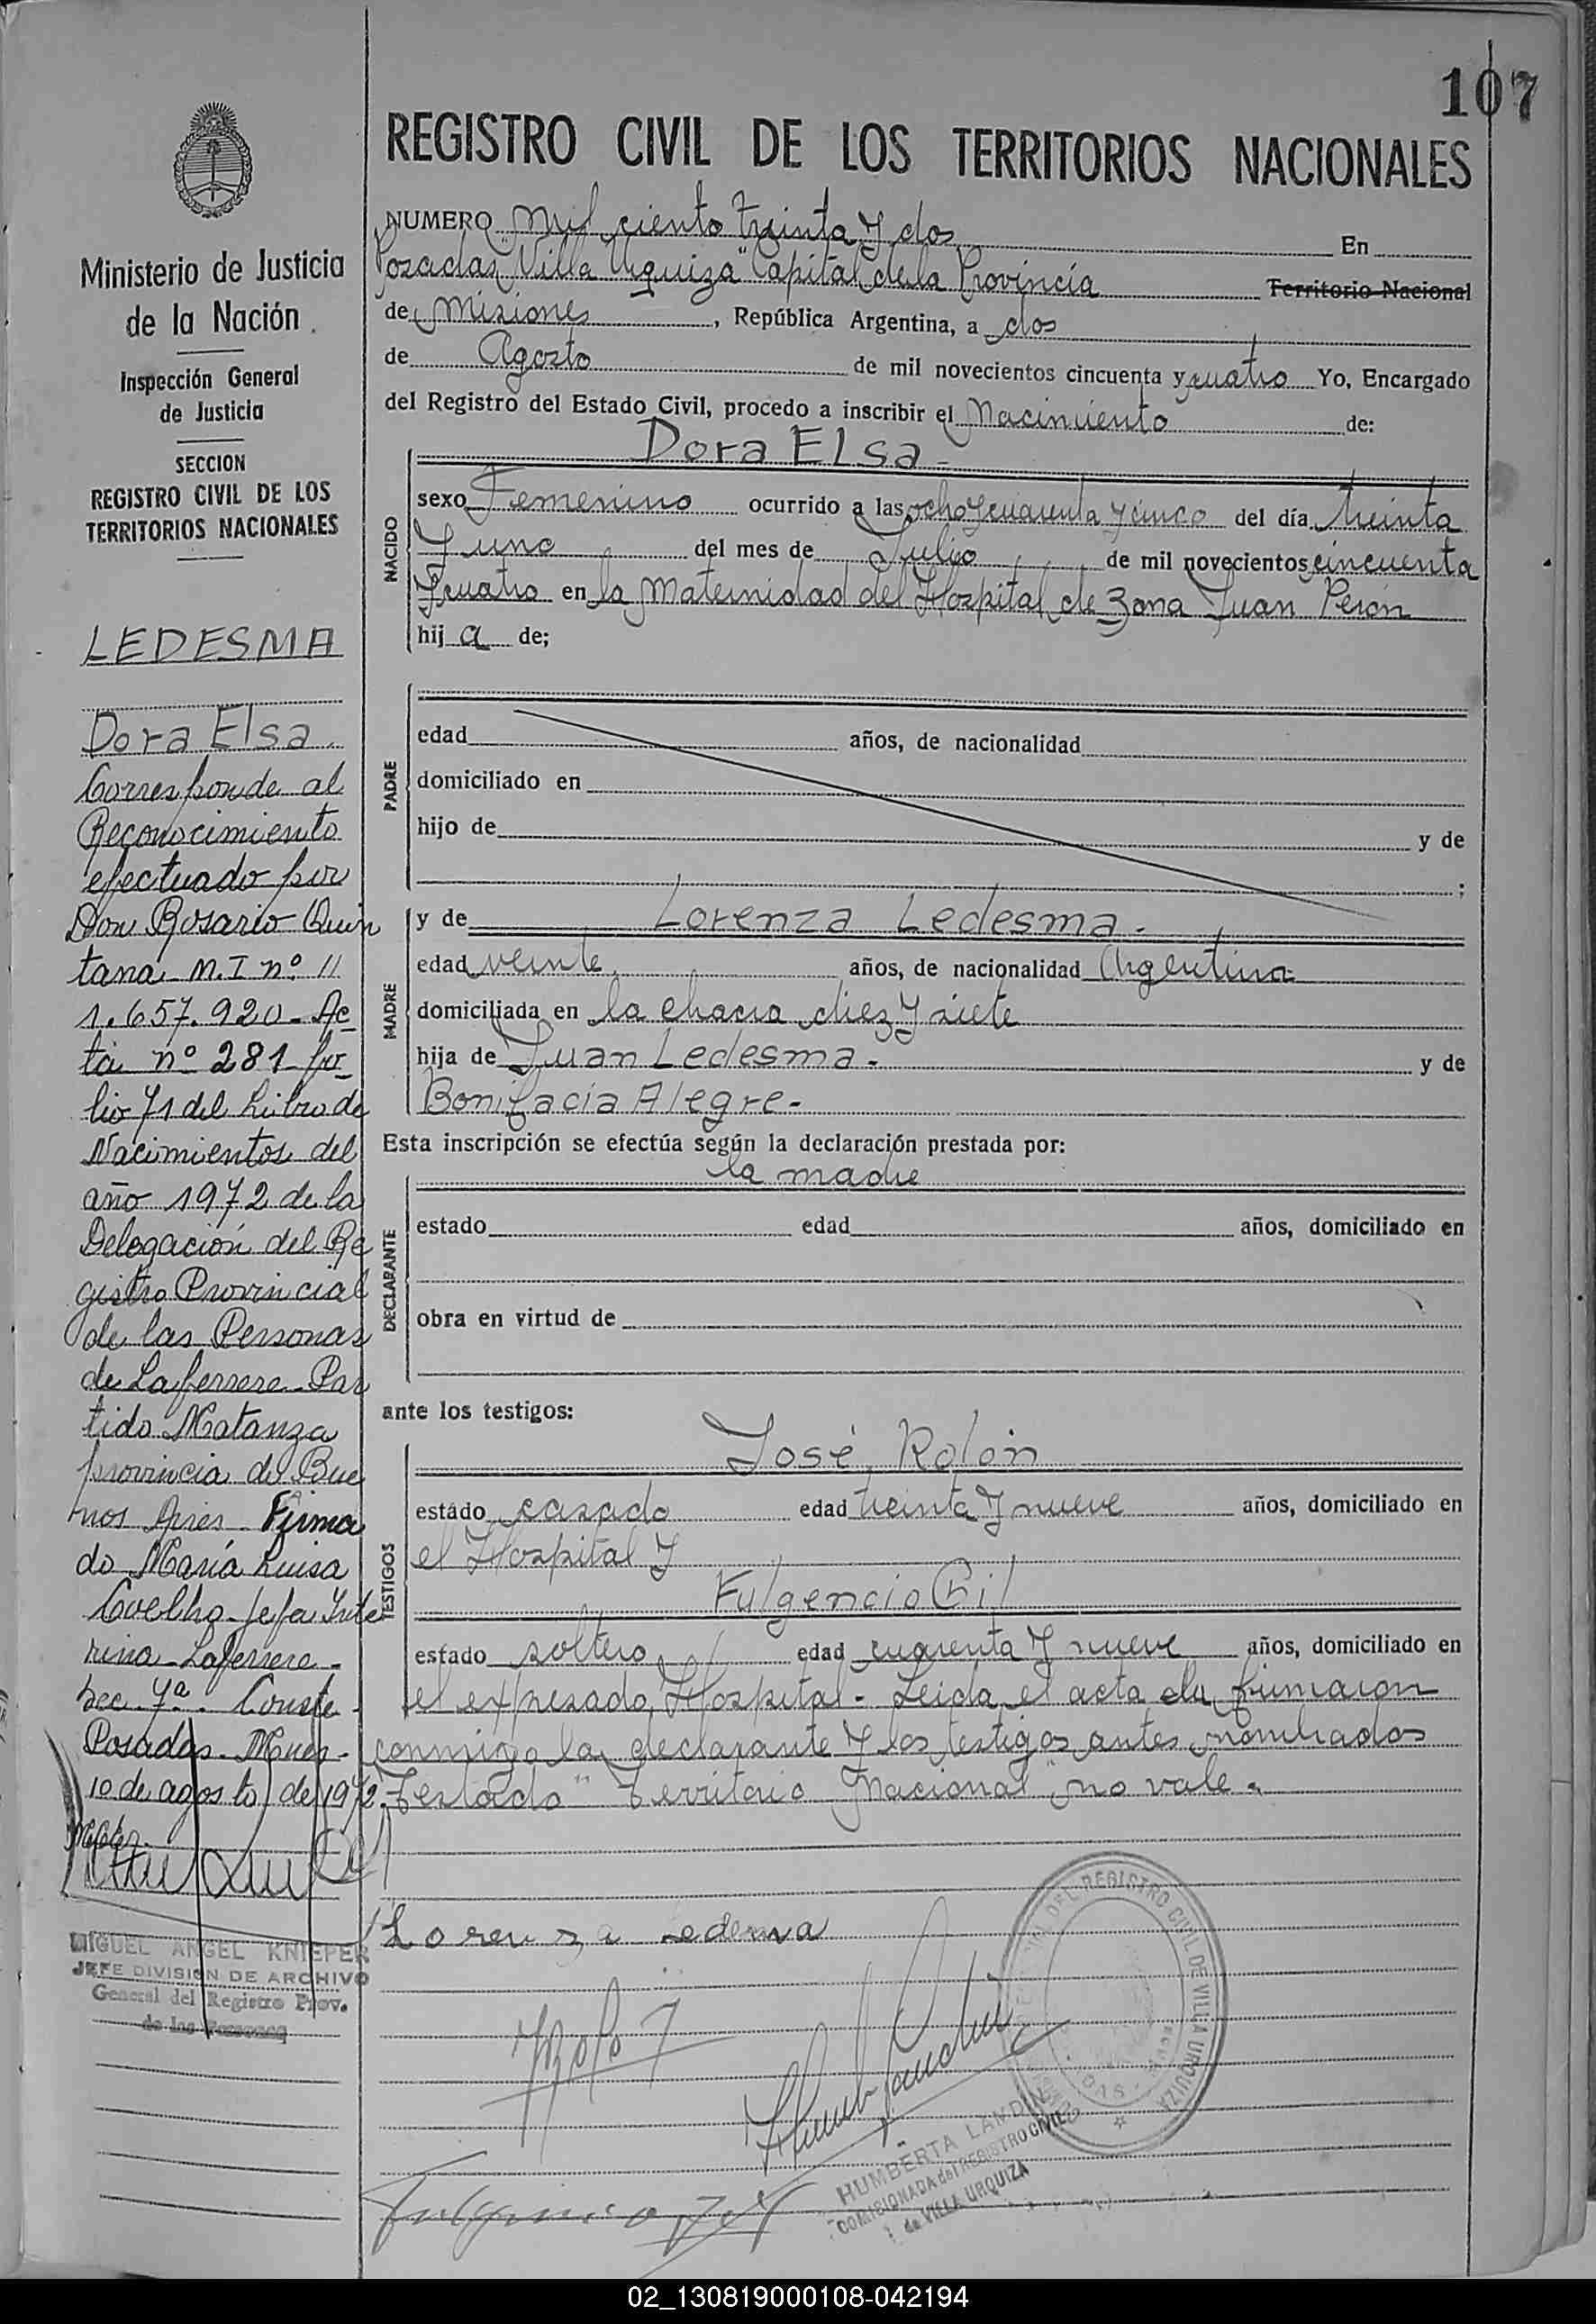 107
REGISTRO CIVIL DE LOS TERRITORIOS NACIONALES
Ministerio de Justicia
de la Nación
Inspección General
de Justicia
SECCION
REGISTRO CIVIL DE LOS
TERRITORIOS NACIONALES
LEDESMA
Dora Elsa
Corresponde al
Reconocimiento
efectuado por
Don Rosario Quin
tana M.I nº 
1.657.920 - Ac
ta nº 281 fo
lio 71 del Libro de
Nacimientos del
año 1972 de la
Delegación del Re
gistro Provincial
de las Personas
de Laferrere - Par
tido Matanza
provincia de Bue
nos Aires - Firma
do María Luisa
Coelho - Jefa Inte
rina - Laferrere -
Sec. 7ª. Conste -
Posadas - Mnes -
10 de agosto de 1972.
MIGUEL ANGEL KNIEPER
JEFE DIVISION DE ARCHIVO
General del Registro Prov.
de las Personas
NUMERO Mil ciento treinta y dos En
Posadas "Villa Urquiza" Capital de la Provincia Territorio Nacional
de Misiones, República Argentina, a dos
de Agosto de mil novecientos cincuenta y cuatro Yo, Encargado
del Registro del Estado Civil, procedo a inscribir el Nacimiento de:
Dora Elsa -
NACIDO
sexo Femenino ocurrido a las ocho y cuarenta y cinco del día treinta
y uno del mes de Julio de mil novecientos cincuenta
y cuatro en la Maternidad del Hospital de Zona Juan Perón
hij a de;
PADRE
edad años, de nacionalidad
domiciliado en
hijo de y de
;
MADRE
y de Lorenza Ledesma -
edad veinte años, de nacionalidad Argentina
domiciliada en la chacra diez y siete
hija de Juan Ledesma - y de
Bonifacia Alegre -
Esta inscripción se efectúa según la declaración prestada por:
la madre
DECLARANTE
estado edad años, domiciliado en
obra en virtud de
ante los testigos:
TESTIGOS
José Rolón
estado casado edad treinta y nueve años, domiciliado en
el Hospital y
Fulgencio Gil
estado soltero edad cuarenta y nueve años, domiciliado en
el expresado Hospital - Leida el acta la firmaron
conmigo la declarante y los testigos antes nombrados
Testado "Territorio Nacional" no vale -
Lorenza Ledesma
DEL REGISTRO CIVIL DE VILLA URQUIZA
HUMBERTA LANDIN
COMISIONADA del REGISTRO CIVIL
de VILLA URQUIZA
02_130819000108-042194